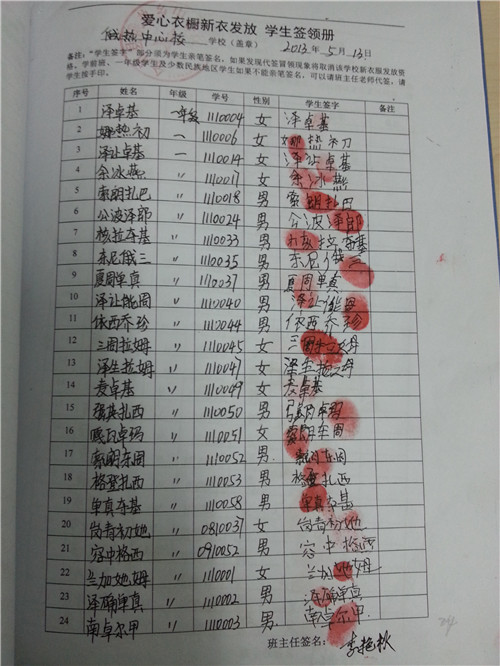 爱心衣橱新衣发放 学生签领册
俄热中心校 学校（盖章） 2013年5月13日
备注："学生签字"部分须为学生亲笔签名，如果发现代签冒领现象将取消该学校新衣服发放资
格，学前班、一年级学生及少数民族地区学生如果不能亲笔签名，可以请班主任老师代签，请
学生按手印。
序号 姓名 年级 学号 性别 学生签字 备注
1 泽卓基 一年级 1110004 女 泽卓基
2 热初 一 1110006 女 热初
3 泽让卓基 一 1110014 女 泽让卓基
4 余冰燕 〃 1110017 女 余冰燕
5 索朗扎巴 〃 1110018 男 索朗扎巴
6 公波泽郎 〃 1110024 男 公波泽郎
7 核拉夺基 〃 1110033 男 核拉夺基
8 东尼俄三 〃 1110035 男 东尼俄三
9 夏周单真 〃 1110037 男 夏周单真
10 泽让能周 〃 1110040 男 泽让能周
11 依西乔珍 〃 1112044 男 依西乔珍
12 三周拉姆 〃 1110045 女 三周拉姆
13 泽生拉姆 〃 1110047 女 泽生拉姆
14 麦卓基 〃 1110049 女 麦卓基
15 扎西 〃 1110050 男 卓玛
16 卓玛 〃 1110051 女 东周
17 索朗东周 〃 1110052 男 索朗东周
18 格登扎西 〃 1110053 男 格登扎西
19 单真夺基 〃 1110058 男 单真夺基
20 尚青初她 〃 0810037 女 尚青初她
21 容中格西 〃 0910052 男 容中格西
22 兰加她姆 〃 1110001 女 兰加她姆
23 泽确单真 〃 1110002 男 泽确单真
24 南卓尔甲 〃 1110003 男 南卓尔甲
班主任签名： 李艳秋